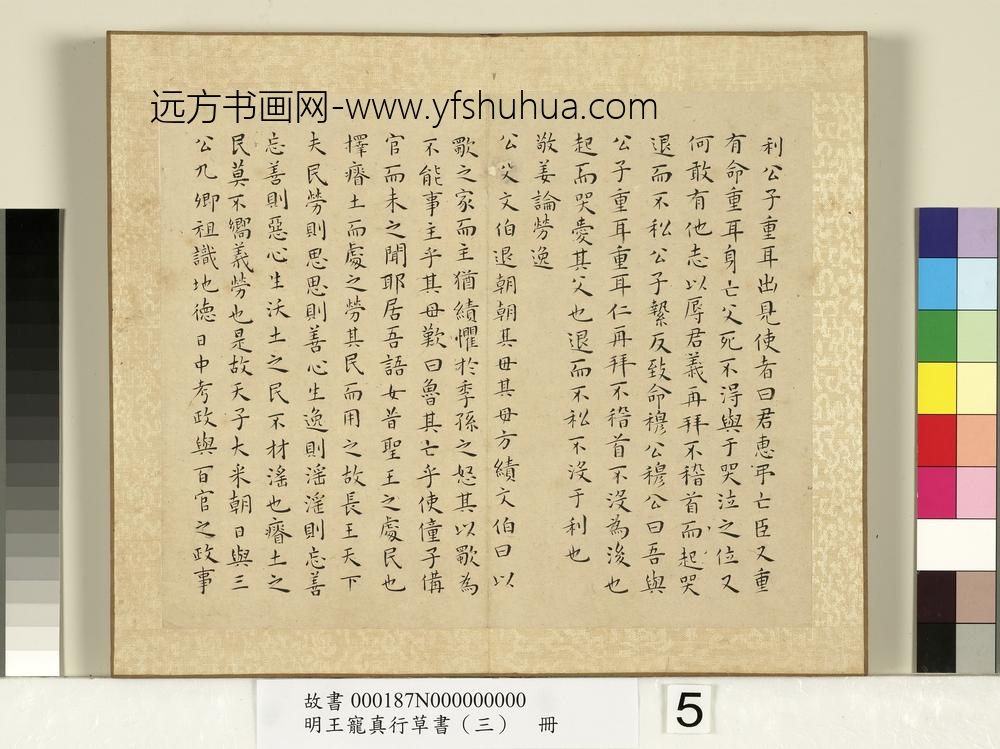 远方书画网-www.yfshuhua.com
利公子重耳出見使者曰君惠弔亡臣又重
有命重耳身亡父死不得與于哭泣之位又
何敢有他志以辱君義再拜不稽首而起哭
退而不私公子縶反致命穆公穆公曰吾與
公子重耳重耳仁再拜不稽首不沒為後也
起而哭愛其父也退而不私不沒于利也
敬姜論勞逸
公父文伯退朝朝其母其母方績文伯曰以
歜之家而主猶績懼於季孫之怒其以歜為
不能事主乎其母歎曰魯其亡乎使僮子備
官而未之聞耶居吾語女昔聖王之處民也
擇瘠土而處之勞其民而用之故長王天下
夫民勞則思思則善心生逸則淫淫則忘善
忘善則惡心生沃土之民不材淫也瘠土之
民莫不嚮義勞也是故天子大采朝日與三
公九卿祖識地德日中考政與百官之政事
故書 000187N000000000
明王寵真行草書（三） 冊
5